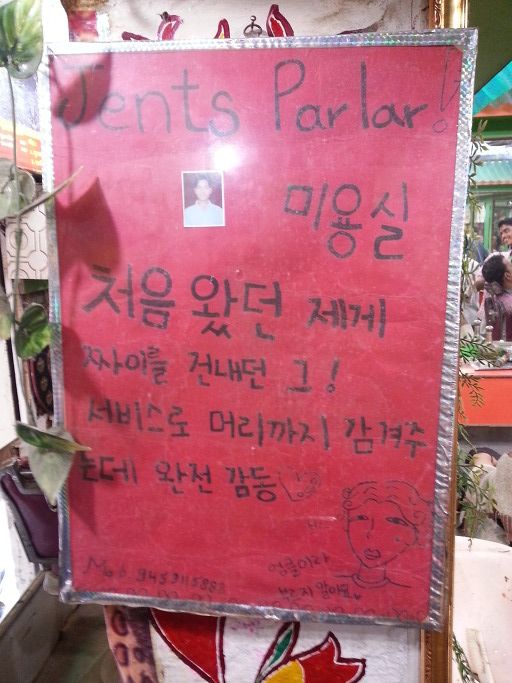 Jents Parlar!
미용실
처음 왔던 제게
짜이를 건내던 그!
서비스로 머리까지 감겨주
는데 완전 감동
Mob 9453115883